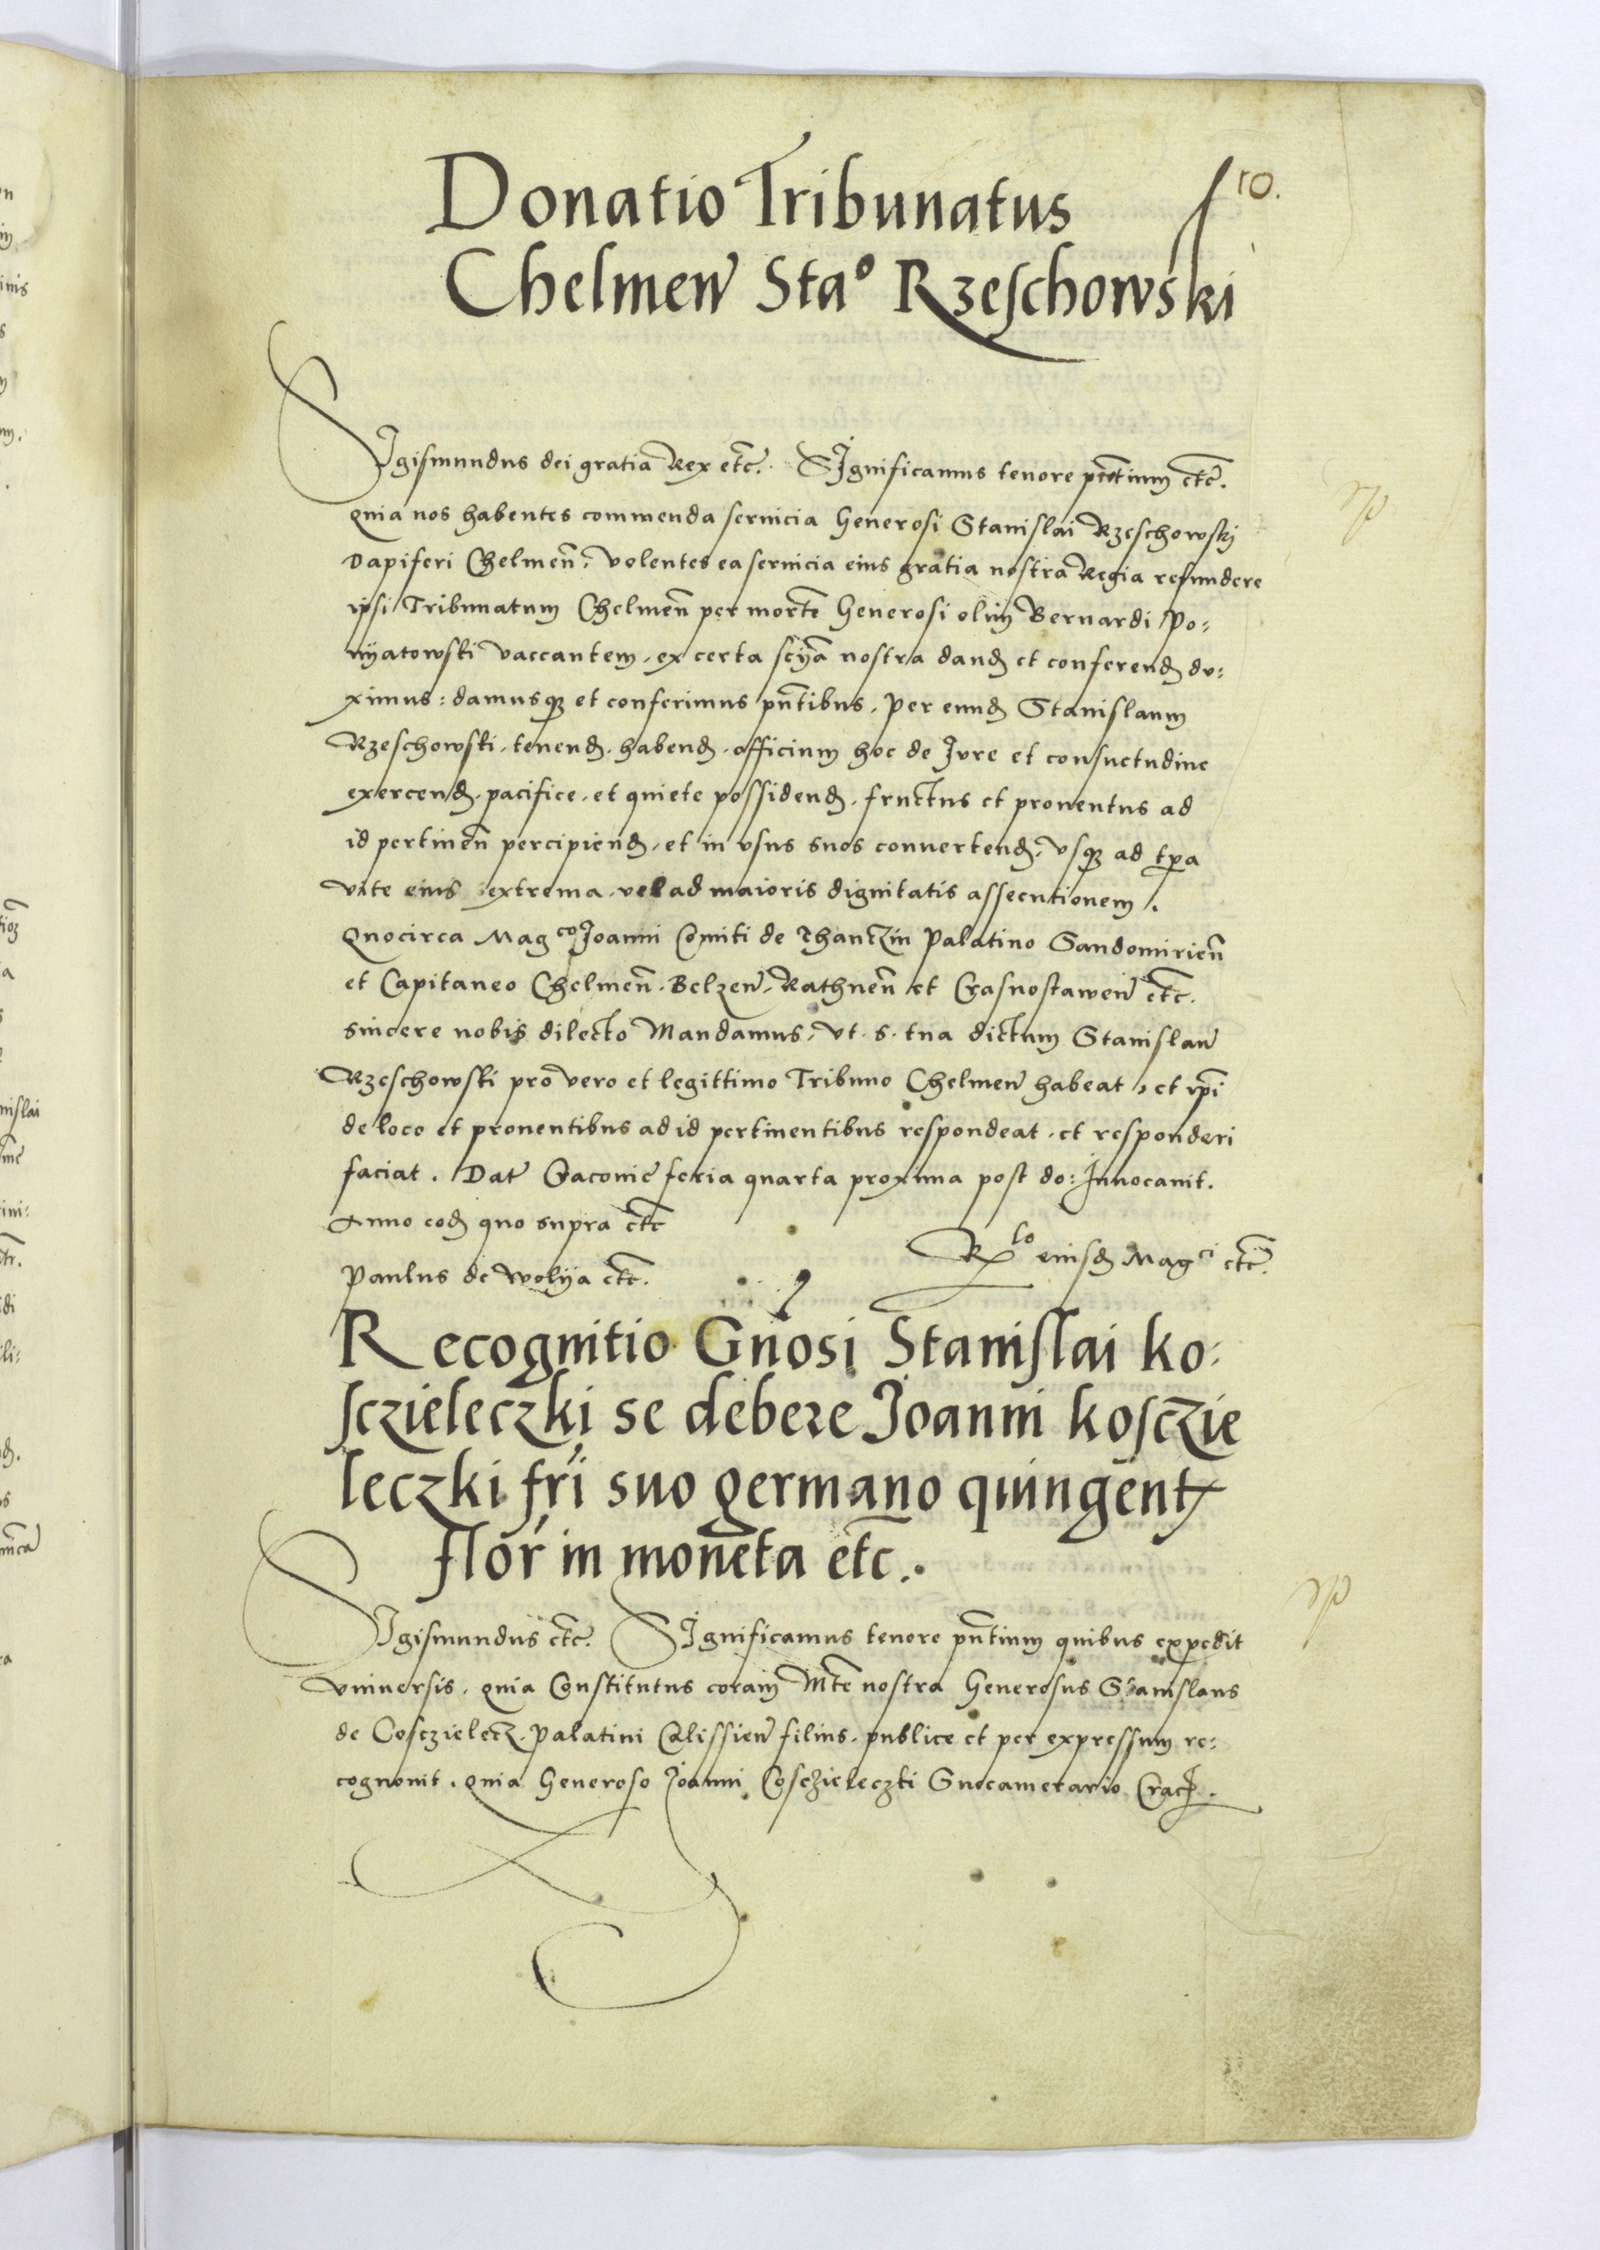 10.
Donatio Tribunatus
Chelmen̄ Sta° Rzeschowski
Sigismundus dei gratia Rex etc̄. Significamus tenore pñtium etc̄.
quia nos habentes commenda seruicia Generosi Stanislai Rzeschowski
Dapiferi Chelmen̄, volentes ea seruicia eius gratia nostra Regia refundere
ipsi Tribunatum Chelmen̄ per morte Generosi olim Bernardi Po:
nyatowski vaccantem, ex certa scīa nostra dand et conferend du:
ximus: damusq et conferimus pñtibus, per eund Stanislaum
Rzeschowski, tenend, habend, officium hoc de Jure et consuetudine
exercend, pacifice, et quiete possidend, fructus et prouentus ad
id pertinen̄ percipiend, et in vsus suos conuertend, vsq ad tpa
vite eius extrema, vel ad maioris dignitatis assecutionem.
Quocirca Mag^co Joanni Comiti de Thanczin Palatino Sandomirien̄
et Capitaneo Chelmen̄, Belzen̄, Rathnen̄ et Crasnostawen̄ etc̄.
sincere nobis dilecto Mandamus, vt. s. tua dictum Stanislau̅
Rzeschowski pro vero et legittimo Tribuno Chelmen̄ habeat, et ipi
de loco et prouentibus ad id pertinentibus respondeat, et responderi
faciat. Dat Cracouie feria quarta proxima post do: Inuocauit.
Anno eod quo supra etc̄
R^lo eiusd Mag^ci etc̄.
Paulus de Wolya etc̄.
Recognitio Gn̄osi Stanislai Ko:
sczieleczki se debere Joanni Kosczie
leczki fri suo germano quingent
flor in moneta etc̄.
Sigismundus etc̄. Significamus tenore pñtium quibus expedit
vniuersis, quia Constitutus coram Mte nostra Generosus Stanislaus
de Cosczielecz, Palatini Calissien̄ filius, publice et per expressum re:
cognouit, quia Generoso Joanni Cosczieleczki Succamerario Crac.